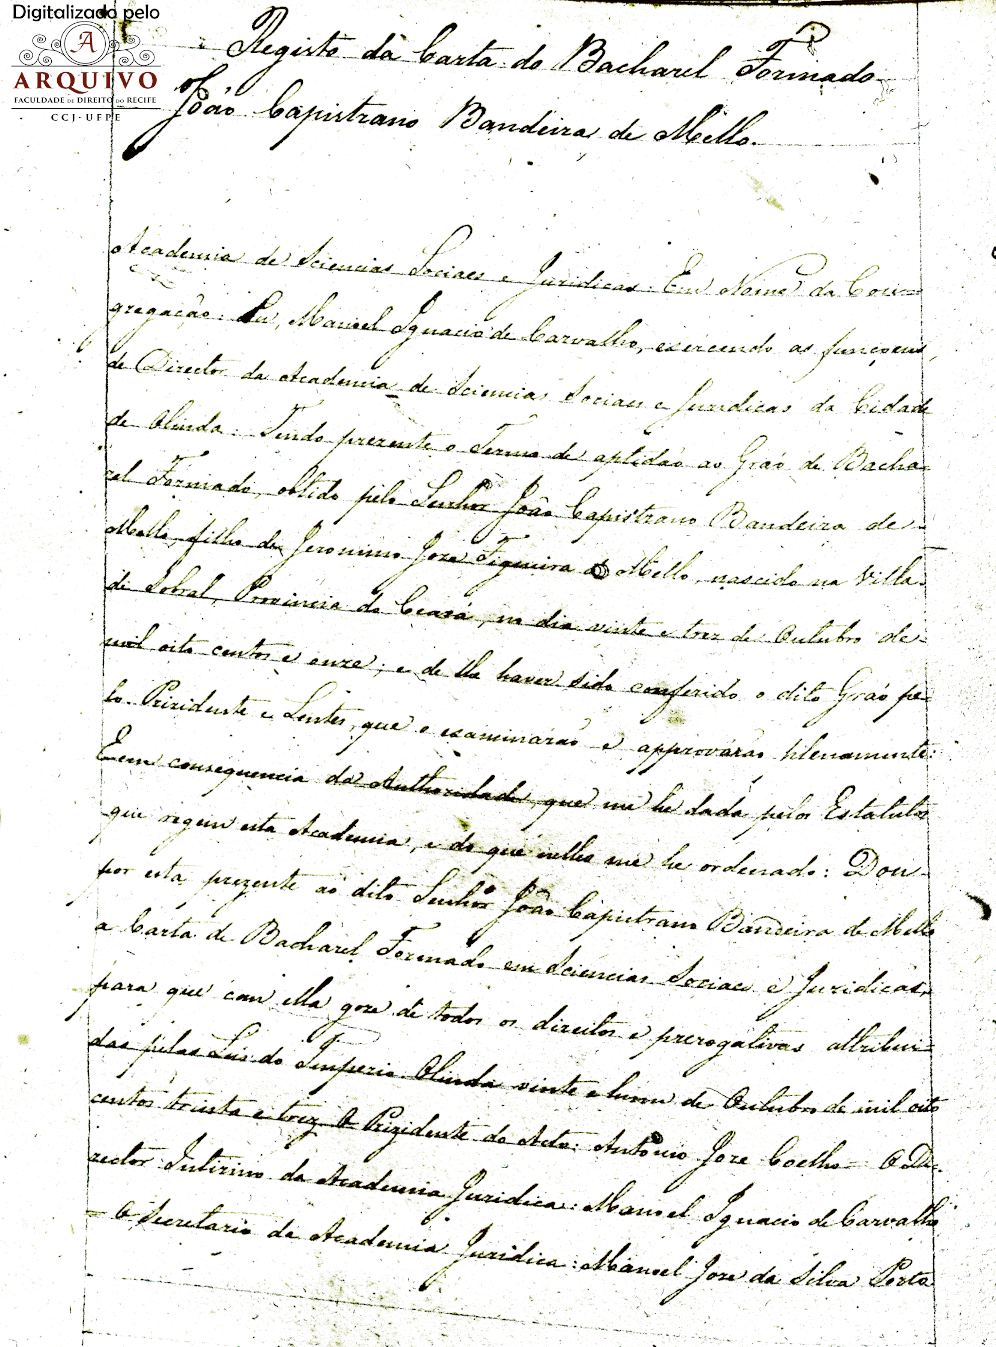 Digitalizado pelo
A
ARQUIVO
FACULDADE DE DIREITO DO RECIFE
CCJ-UFPE
Registo da Carta do Bacharel Formado
João Capistrano Bandeira de Mello.
Academia de Sciencias Sociaes e Juridicas. Em Nome da Con=
gregação: Eu, Manoel Ignacio de Carvalho, exercendo as funçoens,
de Director da Academia de Sciencias Sociaes e Juridicas da Cidade
de Olinda: Tendo prezente o Termo de aptidão ao Gráo de Bacha=
rel Formado, obtido pelo Senhor João Capistrano Bandeira de
Mello, filho de Jeronimo Joze Figueira de Mello, nascido na Villa
de Sobral, Provincia do Ceará, no dia vinte e trez de Outubro de
mil oito centos e onze; e de lhe haver sido conferido o dito Gráo pe
lo Prizidente e Lentes, que o examinarão e approvárão plenamente:
E em consequencia da Authoridade, que me he dada pelos Estatutos
que regem esta Academia, e do que nelles me he ordenado: Dou
por esta prezente ao dito Senhor João Capistrano Bandeira de Mello
a Carta de Bacharel Formado em Sciencias Sociaes e Juridicas,
para que com ella goze de todos os direitos e prerogativas attribui=
das pelas Leis do Imperio. Olinda vinte e hum de Outubro de mil oito
centos trinta e trez. O Prizidente do Acto: Antonio Joze Coelho= O Di=
rector Interino da Academia Juridica: Manoel Ignacio de Carvalho
= O Secretario da Academia Juridica: Manoel Joze da Silva Porto